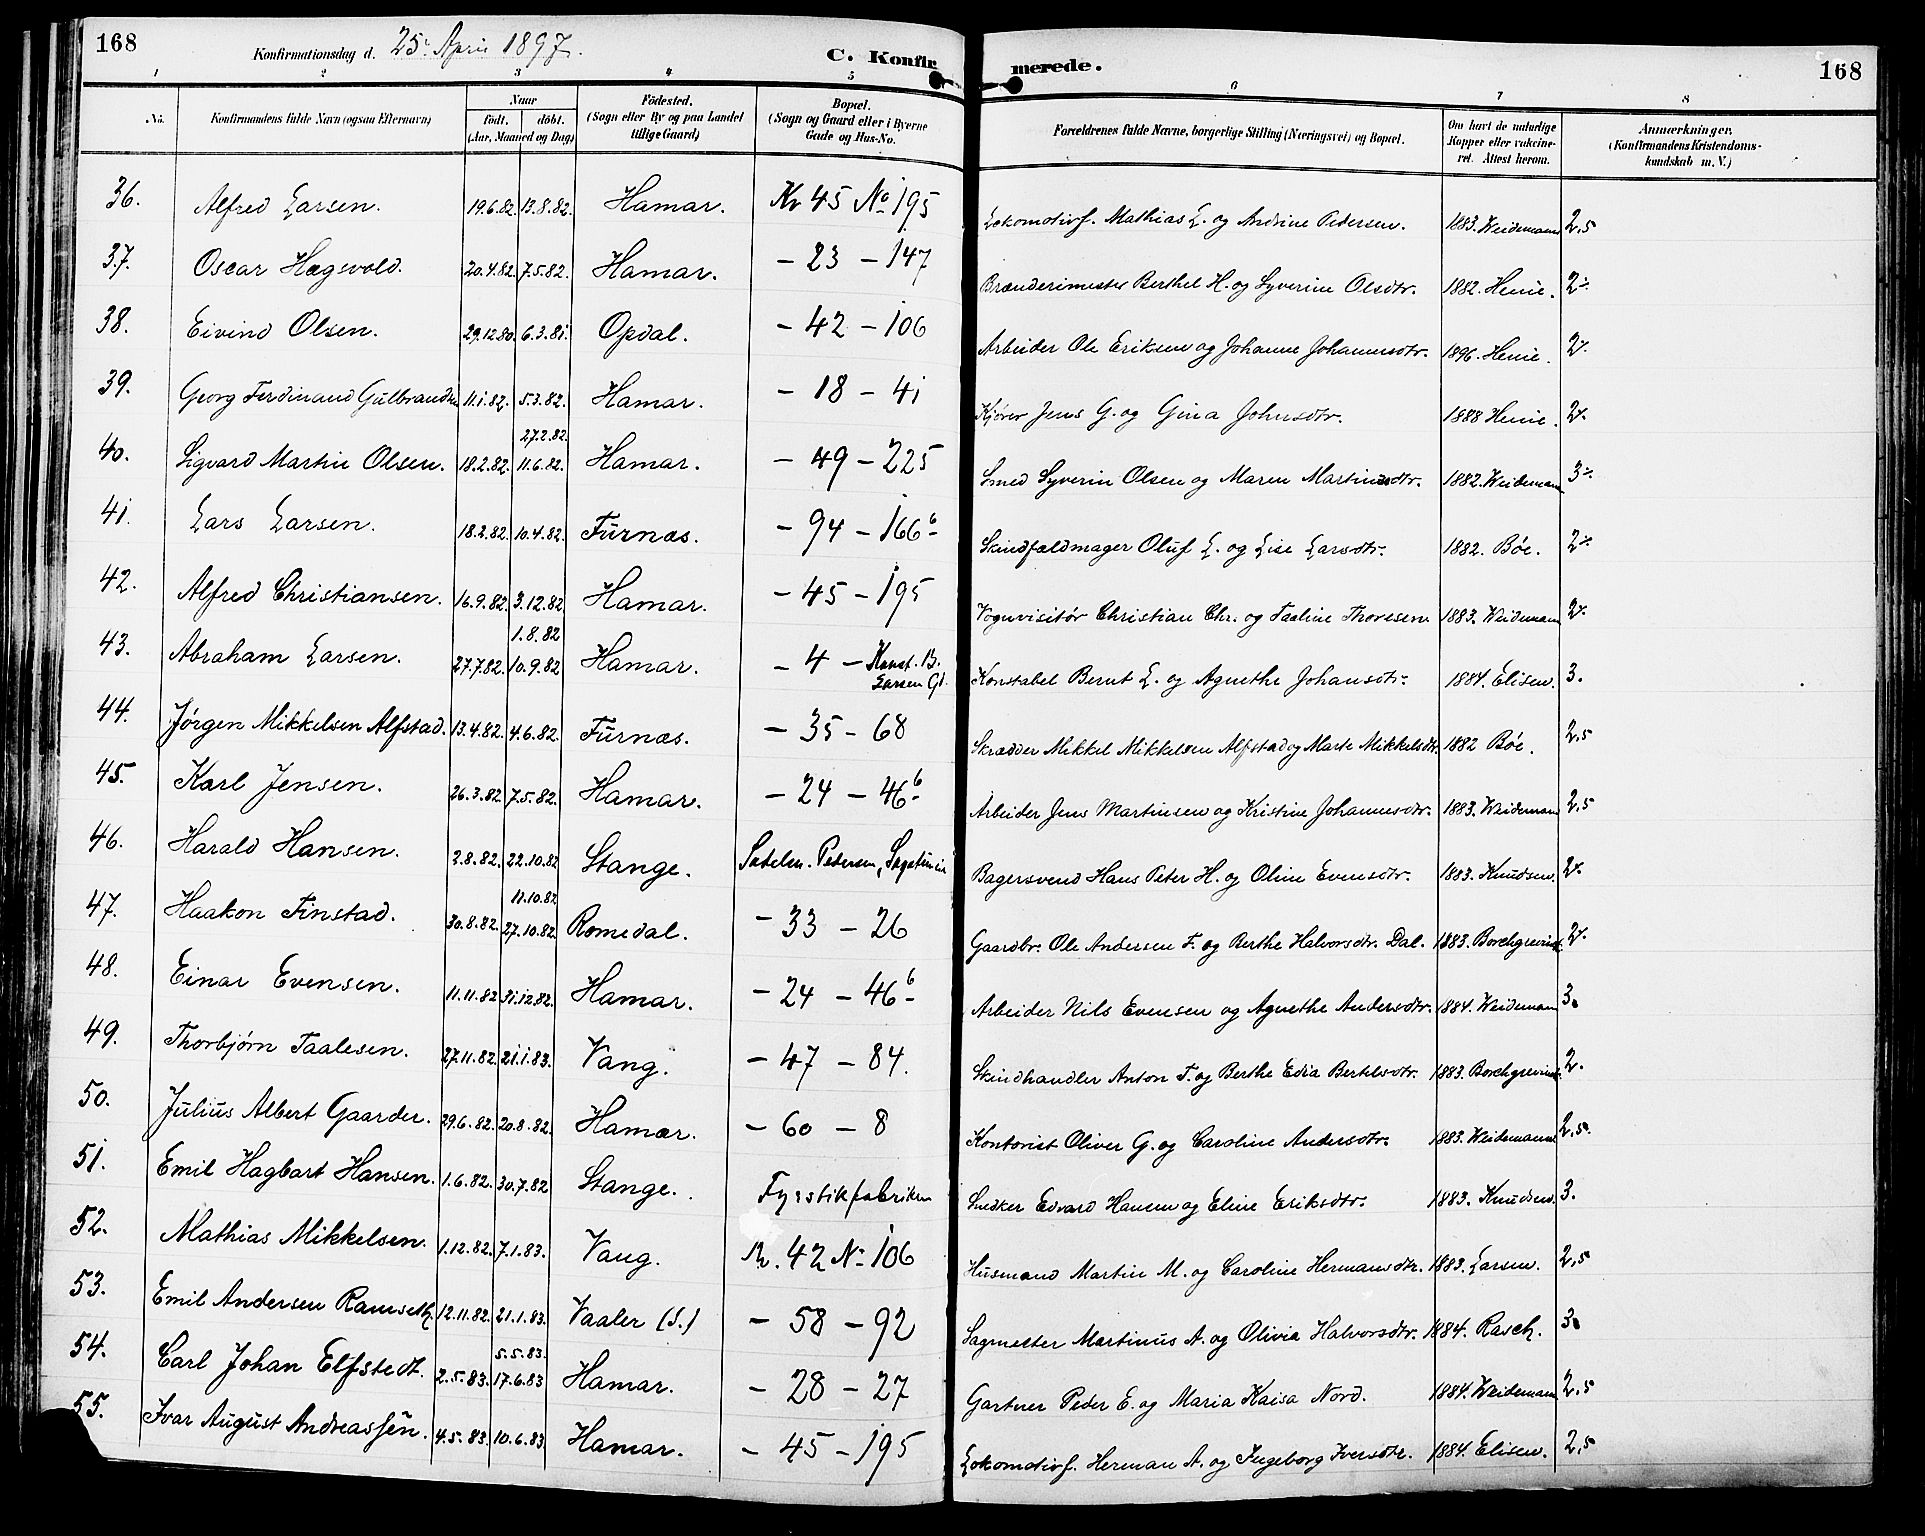 168 Konfirmationsdag d. 25. April 1897. C. Konfirmerede. 168
1 2 3 4 5 6 7 8
No. Konfirmandens fulde Navn (ogsaa Efternavn) Naar født. døbt. (Aar, Maaned og Dag) Fødested. (Sogn eller By og paa Landet tillige Gaard) Bopæl. (Sogn og Gaard eller i Byerne Gade og Hus-No. Forældrenes fulde Navne, borgerlige Stilling (Næringsvei) og Bopæl. Om havt de naturlige Kopper eller vaccineret. Attest herom. Anmærkninger. (Konfirmandens Kristendomskundskab m. V.)
36. Alfred Larsen. 19.6.82. 13.8.82. Hamar. Kv 45 No 195 Lokomotivf. Mathias L. og Andrine Pedersen. 1883. Weidemann 2,5
37. Oscar Hægsvold. 20.4.82. 7.5.82. Hamar. - 23 - 147 Brænderimester Berthel H. og Syverine Olsdtr. 1882. Henie. 2.
38. Eivind Olsen. 29.12.80. 6.3.81. Opdal. - 42 - 106 Arbeider Ole Eriksen og Johanne Johannesdtr. 1896. Henie. 2.
39. Georg Ferdinand Gulbrandsen 11.1.82. 5.3.82. Hamar. - 18 - 41 Kjører Jens G. og Gina Johnsdtr. 1888 Henie. 2.
40. Sigvard Martin Olsen. 18.2.82. 27.2.82. 11.6.82. Hamar. - 49 - 225 Smed Syverin Olsen og Maren Martinusdtr. 1882. Weidemann 3.
41. Lars Larsen. 18.2.82. 10.4.82. Furnæs. - 94 - 166 6 Skindfældmager Oluf L. og Lise Larsdtr. 1882. Bøe. 2.
42. Alfred Christiansen. 16.9.82. 3.12.82. Hamar. - 45 - 195 Vognvisitør Christian Chr. og Taaline Thoresen 1883. Weidemann 2.
43. Abraham Larsen. 27.7.82. 1.8.82 10.9.82 Hamar. - 4 - Konst. B. Larsen Gd. Konstabel Bernt L. og Agnethe Johansdtr. 1884. Elisen. 3.
44. Jørgen Mikkelsen Alfstad. 13.4.82. 4.6.82. Furnæs. - 35 - 68 Skrædder Mikkel Mikkelsen Alfstad og Marte Mikkelsdtr. 1882 Bøe. 2,5
45. Karl Jensen. 26.3.82. 7.5.82. Hamar. - 24 - 46 6 Arbeider Jens Martinsen og Kristine Johannesdtr. 1883. Weidemann 2,5
46. Harald Hansen. 2.8.82. 22.10.82 Stange. Sadelm. Pedersen, Bagersvend Hans Peter H. og Oline Evensdtr. 1883. Knudsen. 2.
47. Haakon Finstad. 30.8.82. 11.10.82 27.10.82. Romedal. - 33 - 26 Gaardbr. Ole Andersen F. og Berthe Halvorsdtr. Dal. 1883. Borchgrevink. 2.
48. Einar Evensen. 11.11.82 31.12.82. Hamar. - 24 - 46 6 Arbeider Nils Evensen og Agnethe Andersdtr. 1884. Weidemann 3.
49. Thorbjørn Taalesen. 27.11.82. 21.1.83. Vang. - 47 - 84. Skindhandler Anton T. og Berthe Edia Bertelsdtr. 1883. Borchgrevink. 2.
50. Julius Albert Gaarder. 29.6.82. 20.8.82. Hamar. - 60 - 8 Kontorist Oliver G. og Caroline Andersdtr. 1883. Weidemann 2,5.
51. Emil Hagbart Hansen. 1.6.82. 30.7.82 Stange. Fyrstikfabriken Snedker Edvard Hansen og Eline Eriksdtr. 1883. Knudsen. 3.
52. Mathias Mikkelsen. 1.12.82. 7.1.83. Vang. Kv. 42 No 106 Husmand Martin M. og Caroline Hermansdtr. 1883. Larsen. 2,5
53. Emil Andersen Ramseth. 12.11.82. 21.1.83. Vaaler (S.) - 58 - 92 Sagmester Martinus A. og Olivia Halvorsdtr. 1884. Rasch. 3.
54. Carl Johan Elfstedt. 2.5.83. 5.5.83. 17.6.83 Hamar. - 28 - 27 Gartner Peder E. og Maria Kaisa Nord. 1884. Weidemann 2,5
55. Ivar August Andreassen. 4.5.83. 10.6.83 Hamar. - 45 - 195 Lokomotivf. Herman A. og Ingeborg Iversdtr. 1884. Elisen. 2,5